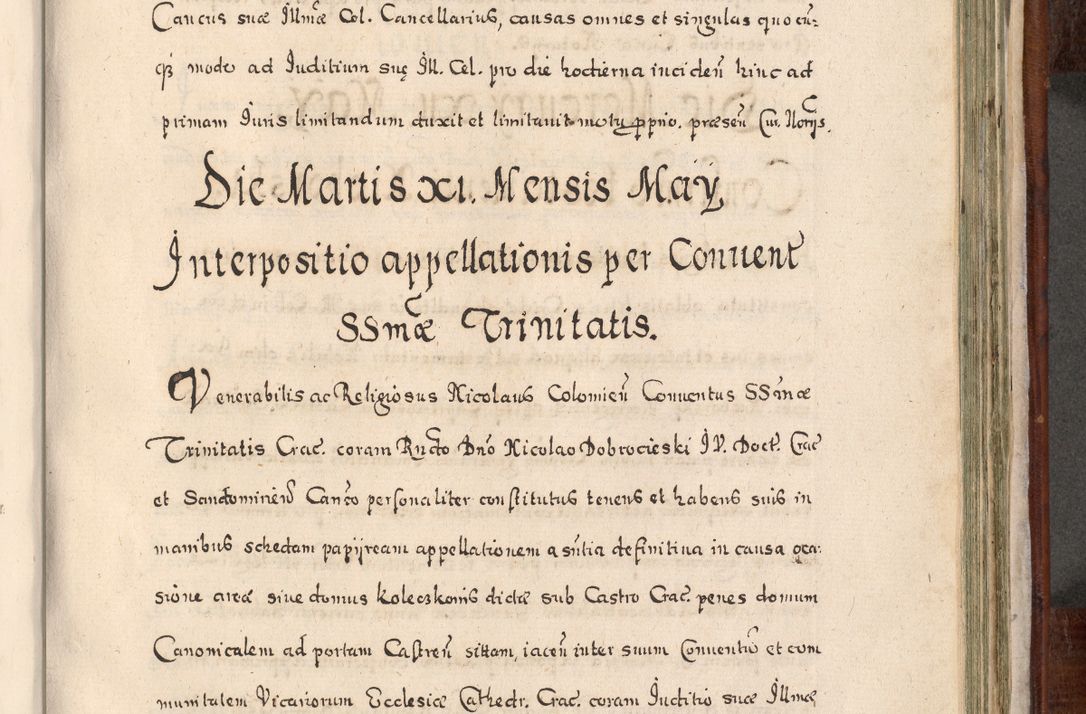 Caucus suæ Illmæ Cel. Cancellarius, causas omnes et singulas quocũ:
qȝ modo ad Juditium suę Ill. Cel. pro die hodierna inciden̄ hinc ad
primam Juris limitandum duxit et limitauit motu ꝓprio. præsen̄ Cur. Norijs.
Die Martis XI. Mensis Maÿ.
Interpositio appellationis per Conuent
SSmæ Trinitatis.
Venerabilis ac Religiosus Nicolaus Colomien̄ Conuentus SSmæ
Trinitatis Crac. coram Rndo Dno Nicolao Dobrocieski I.V. Doct. Crac
et Sandomirien̄ Canco personaliter constitutus tenens et habens suis in
manibus schedam papÿream appellationem a sntia definitiua in causa oca:
sione areæ siue domus Koleczkonis dictæ sub Castro Crac. penes domum
Canonicalem ad portam Castren̄ sittam, iacen̄ inter suum Conuentū et com
munitatem Vicariorum Ecclesiæ Cathedr. Crac. coram Juditio suæ Illmæ